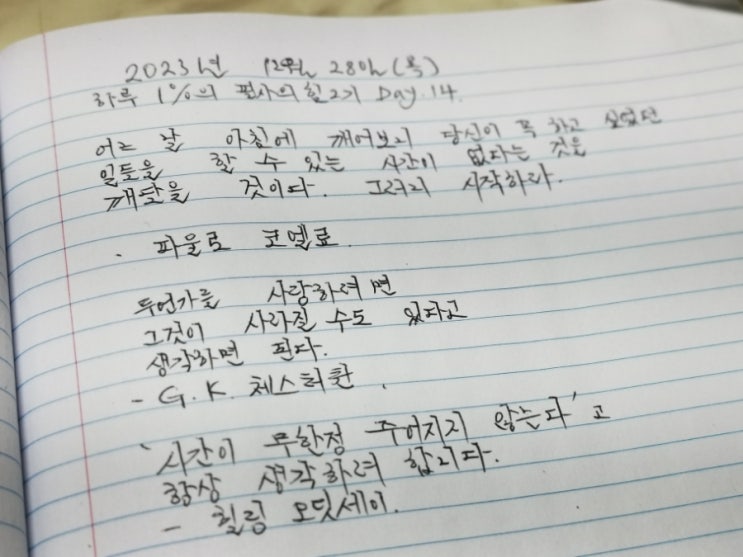 2023년 12월 28일(목)
하루 1%의 필사의 힘 2기 Day.14.
어느 날 아침에 깨어보니 당신이 꼭 하고 싶었던
일들을 할 수 있는 시간이 없다는 것을
깨달을 것이다. 그러니 시작하라.
· 파울로 코엘료
무언가를 사랑하려면
그것이 사라질 수도 있다고
생각하면 된다.
- G.K. 체스터턴.
'시간이 무한정 주어지지 않는다'고
항상 생각하려 합니다.
- 힐링 오딧세이.